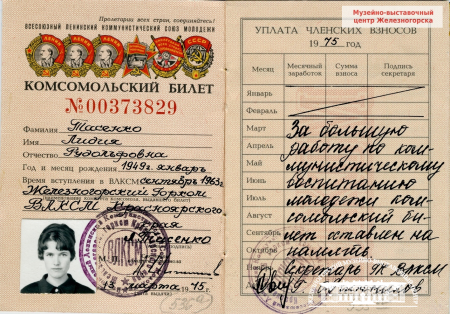 Музейно-выставочный
центр Железногорска
Пролетарии всех стран, соединяйтесь!
ВСЕСОЮЗНЫЙ ЛЕНИНСКИЙ КОММУНИСТИЧЕСКИЙ СОЮЗ МОЛОДЕЖИ
КОМСОМОЛЬСКИЙ БИЛЕТ
№00373829
Фамилия Тасенко
Имя Лидия
Отчество Рудольфовна
Год и месяц рождения 1949 г. январь
Время вступления в ВЛКСМ сентябрь 1963 г.
Железногорский Горком
ВЛКСМ Красноярского
края
Тасенко
13 марта 1975 г.
УПЛАТА ЧЛЕНСКИХ ВЗНОСОВ
1975 год
Месяц Месячный заработок Сумма взноса Подпись секретаря
Январь
Февраль
Март За большую
Апрель работу по ком-
Май мунистическому
Июнь воспитанию
Июль молодежи ком-
Август сомольский би-
Сентябрь лет оставлен на
Октябрь память
Секретарь ГК ВЛКСМ